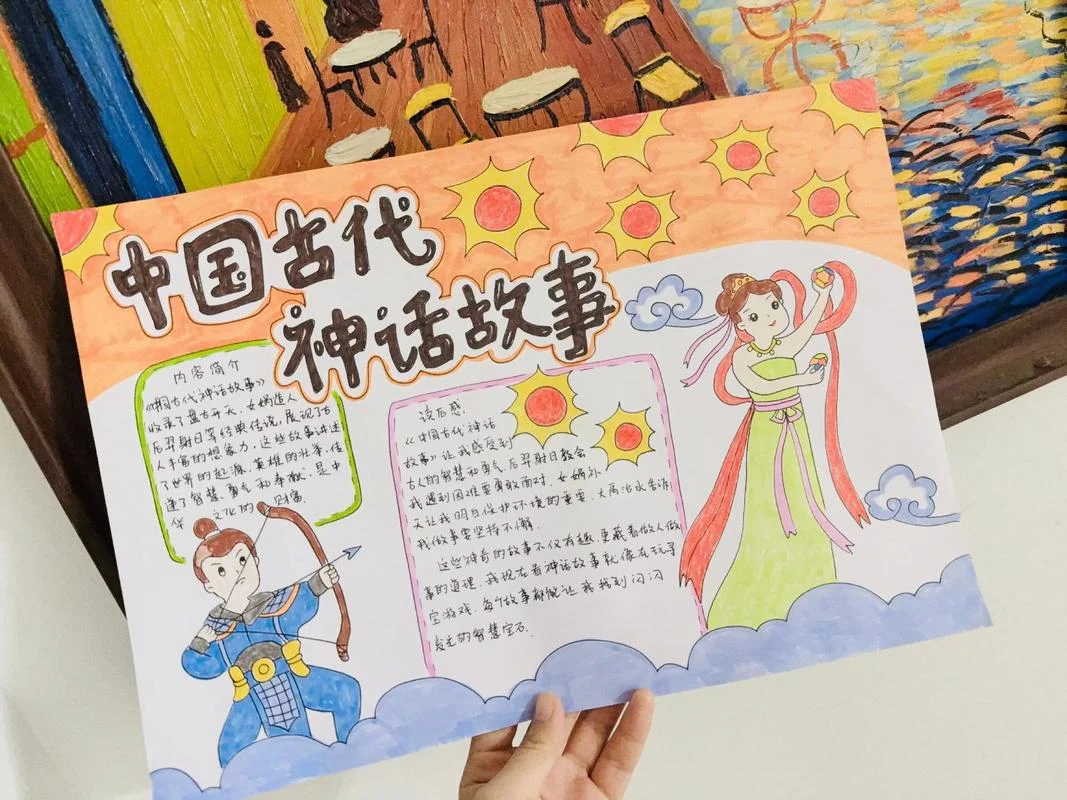 中国古代
神话故事
内容简介
《中国古代神话故事》
收录了盘古开天、女娲造人
后羿射日等经典传说,展现了古
人丰富的想象力,这些故事讲述
了世界的起源、英雄的壮举,传
递了智慧、勇气和奉献,是中
华 文化的 财富.
读后感.
《中国古代神话
故事》让我感受到
古人的智慧和勇气.后羿射日教会
我遇到困难要勇敢面对.女娲补
天让我明白保护环境的重要.大禹治水告诉
我做事要坚持不懈.
这些神奇的故事不仅有趣,更藏着做人做
事的道理.我现在看神话故事就像在玩寻
宝游戏.每个故事都能让我找到闪闪
发光的智慧宝石.